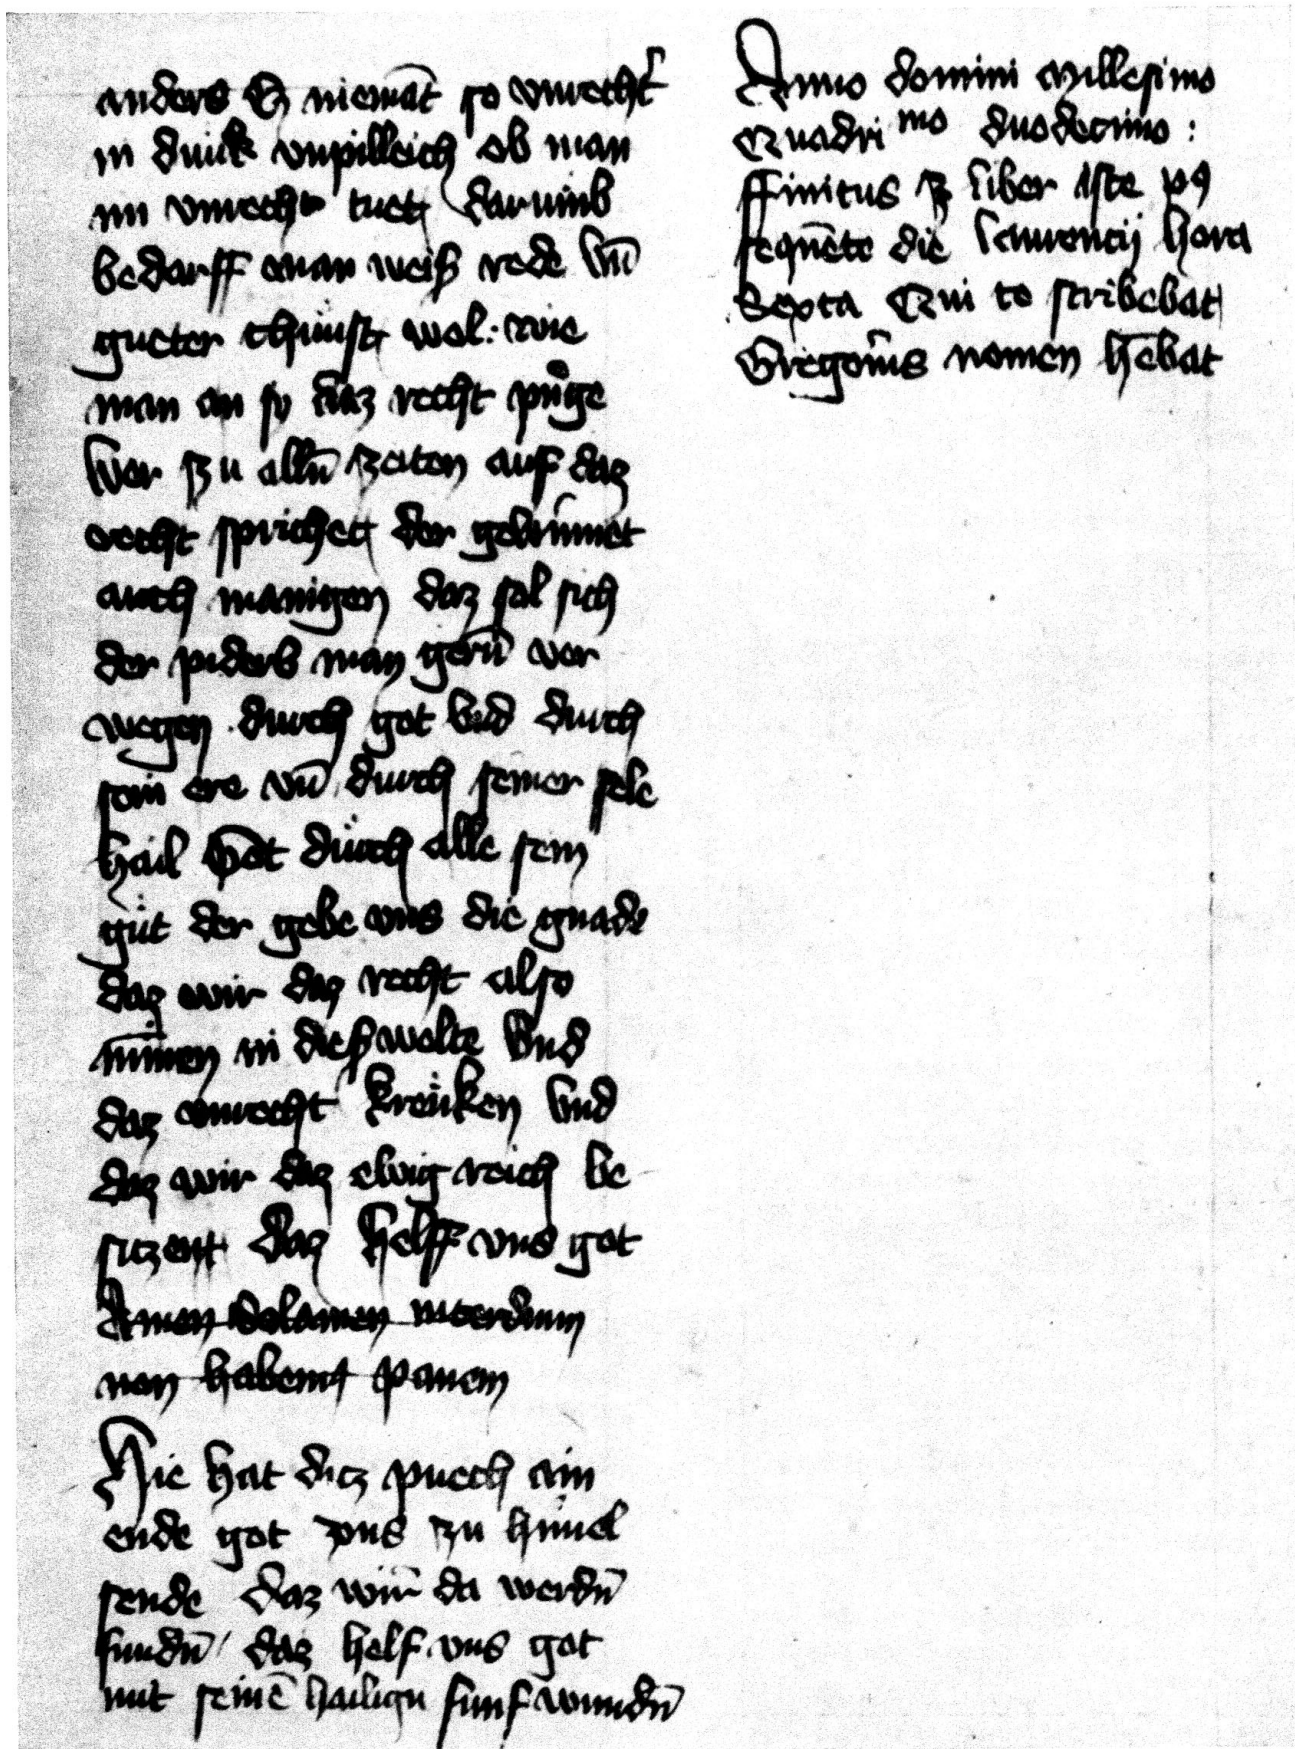 anders Ez niemāt so vnrecht
in dunk vnpilleich ob man
im vnrecht tuet darumb
bedarff man weiß rede vn̄
gueter chunst wol: wie
man an so daz recht pringe
Wer zu alln̄ zeiten auf daz
recht sprichet der gewinnet
auch manigen daz sol sich
der piderb man gern̄ ver
wegen durch got vnd durch
sein ere vn̄ durch seiner sele
hail Got durch alle sein
güt der gebe vns die gnade
daz wir daz recht also
mīnen in dieß welte vnd
daz vnrecht krenken vnd
daz wir daz ewig reich be
sitzent Daz helff vns got
Amen Solamen interdum
non habemꝰ panem
Hie hat ditz puech ain
ende got vns zu himel
sende Daz wir da werdn̄
fundn̄ / daz helf vns got
mit seinē hailign funf wundn̄
Anno domini Millesimo
Quadri mo duodecimo :
ffinitus ꝫ liber iste pꝰ
sequēte die laurencij hora
Sexta Qui te scribebat
Gregorius nomen hēbat